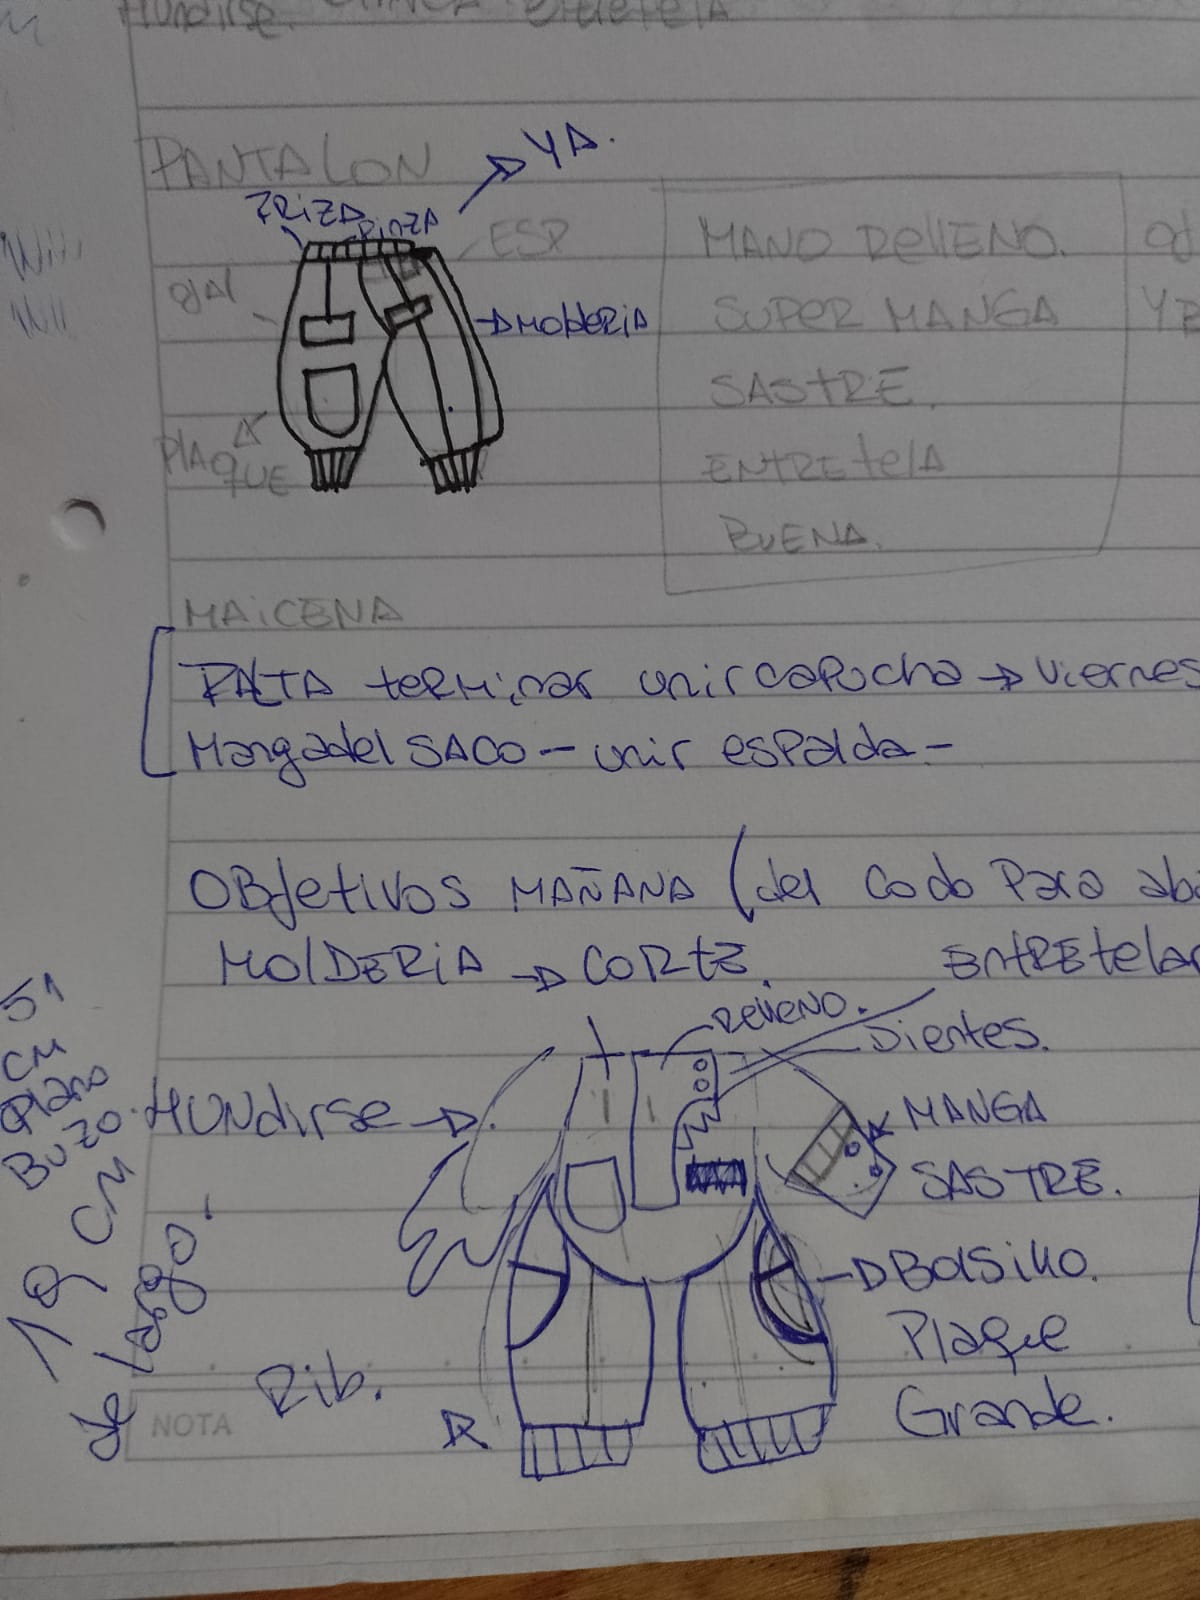 Hundirse. entretela
PANTALON
YA.
FRIZA
PINZA
ESP
ojal
MOLDERIA
PLAQUE
MANO RELLENO.
SUPER MANGA
SASTRE.
ENTRETELA
BUENA.
MAICENA
FALTA terminar unir capucha → viernes
Manga del SACO - unir espalda -
OBJETIVOS MAÑANA (del Codo Para aba
MOLDERIA → CORTE.
ENTRETELAR
RELLENO.
Dientes.
HUNDIRSE →
MANGA
SASTRE.
Bolsillo.
Plaque
Grande.
Rib.
51
CM
Plano
BUZO.
19 CM
de largo.
NOTA